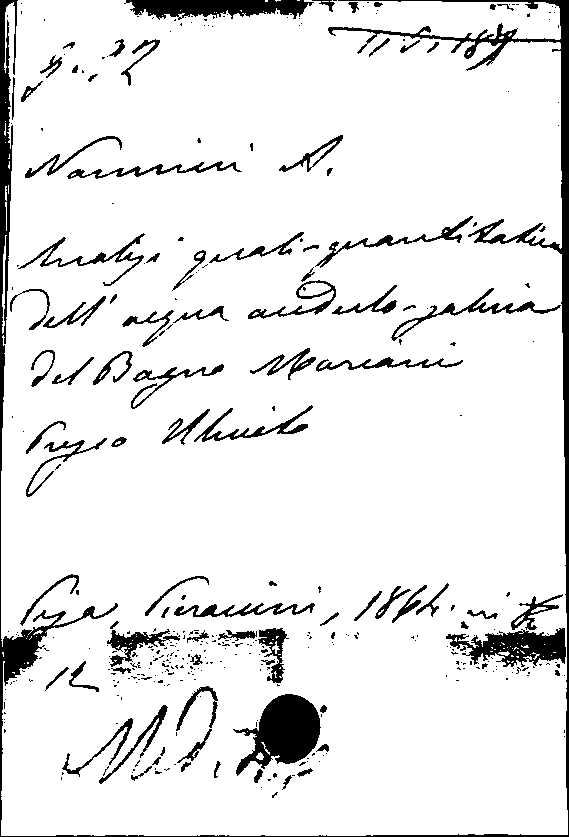 Nannini A.
Analisi quali-quantitativa
dell' acqua acidulo-salina
del Bagno Mariani
presso Uliveto
Pisa, Pieraccini, 1864. in
12
Med.